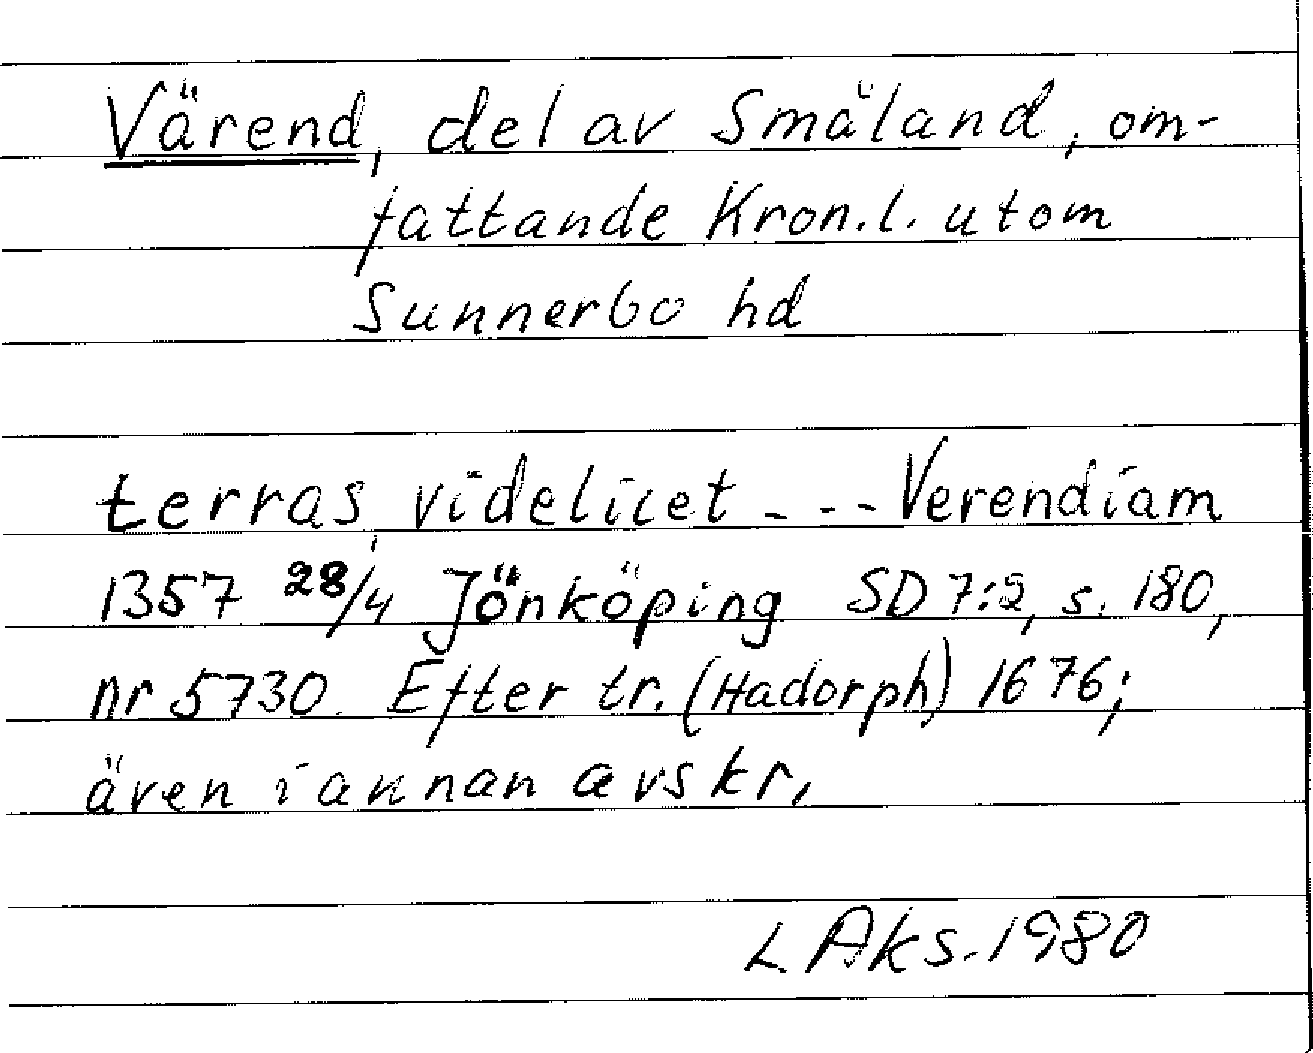 Värend, del av Småland, om-
fattande Kron.l. utom
Sunnerbo hd
terras videlicet - - - Verendiam
1357 28/4 Jönköping SD 7:2, s. 180,
nr 5730. Efter tr. (Hadorph) 1676;
även i annan avskr.
L. Aks. 1980